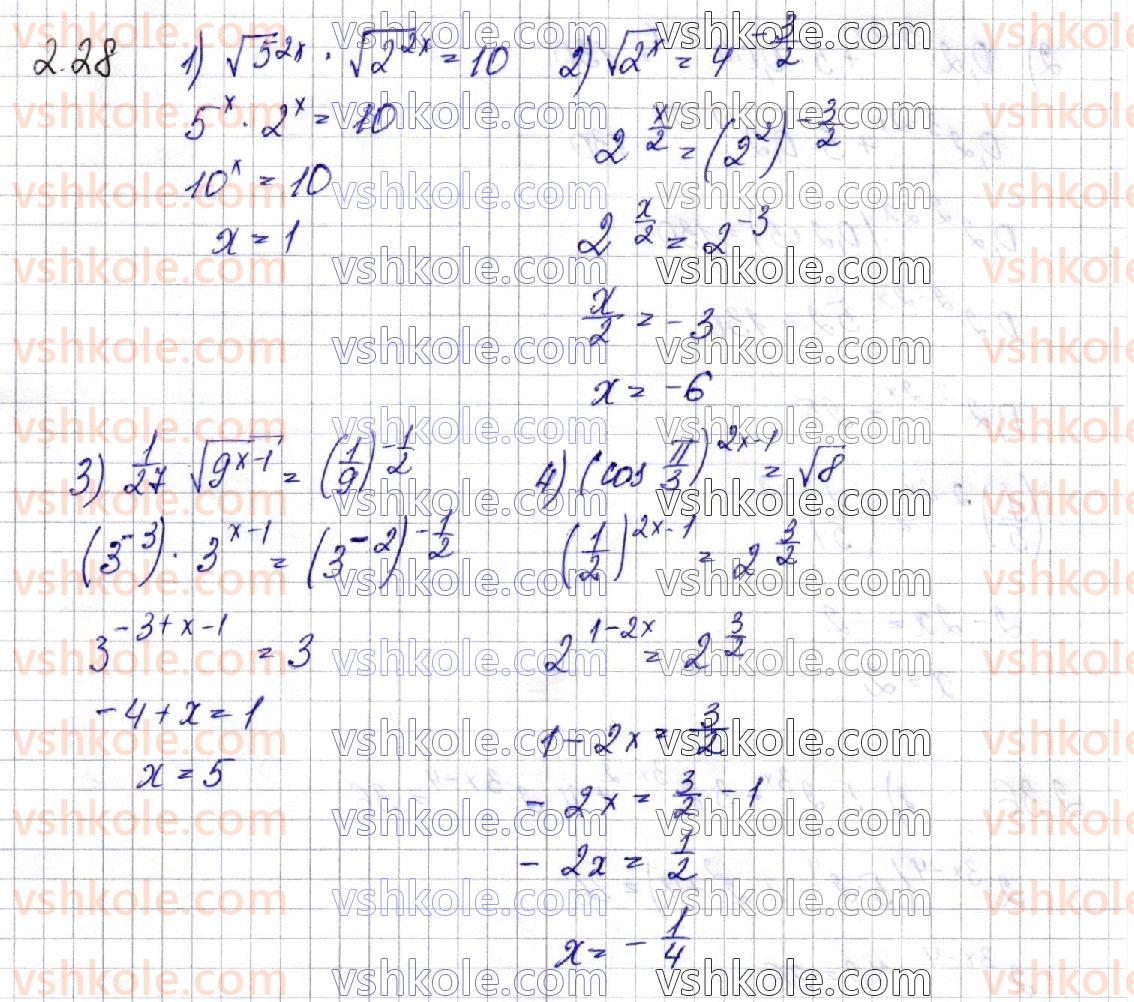 2.28 1) √5^{2x} · √2^{2x} = 10
5^x · 2^x = 10
10^x = 10
x = 1
2) √2^x = 4^{-3/2}
2^{x/2} = (2^2)^{-3/2}
2^{x/2} = 2^{-3}
x/2 = -3
x = -6
3) 1/27 √9^{x-1} = (1/9)^{-1/2}
(3^{-3}) · 3^{x-1} = (3^{-2})^{-1/2}
3^{-3+x-1} = 3
-4+x = 1
x = 5
4) (cos π/3)^{2x-1} = √8
(1/2)^{2x-1} = 2^{3/2}
2^{1-2x} = 2^{3/2}
1-2x = 3/2
-2x = 3/2 - 1
-2x = 1/2
x = -1/4
vshkole.com